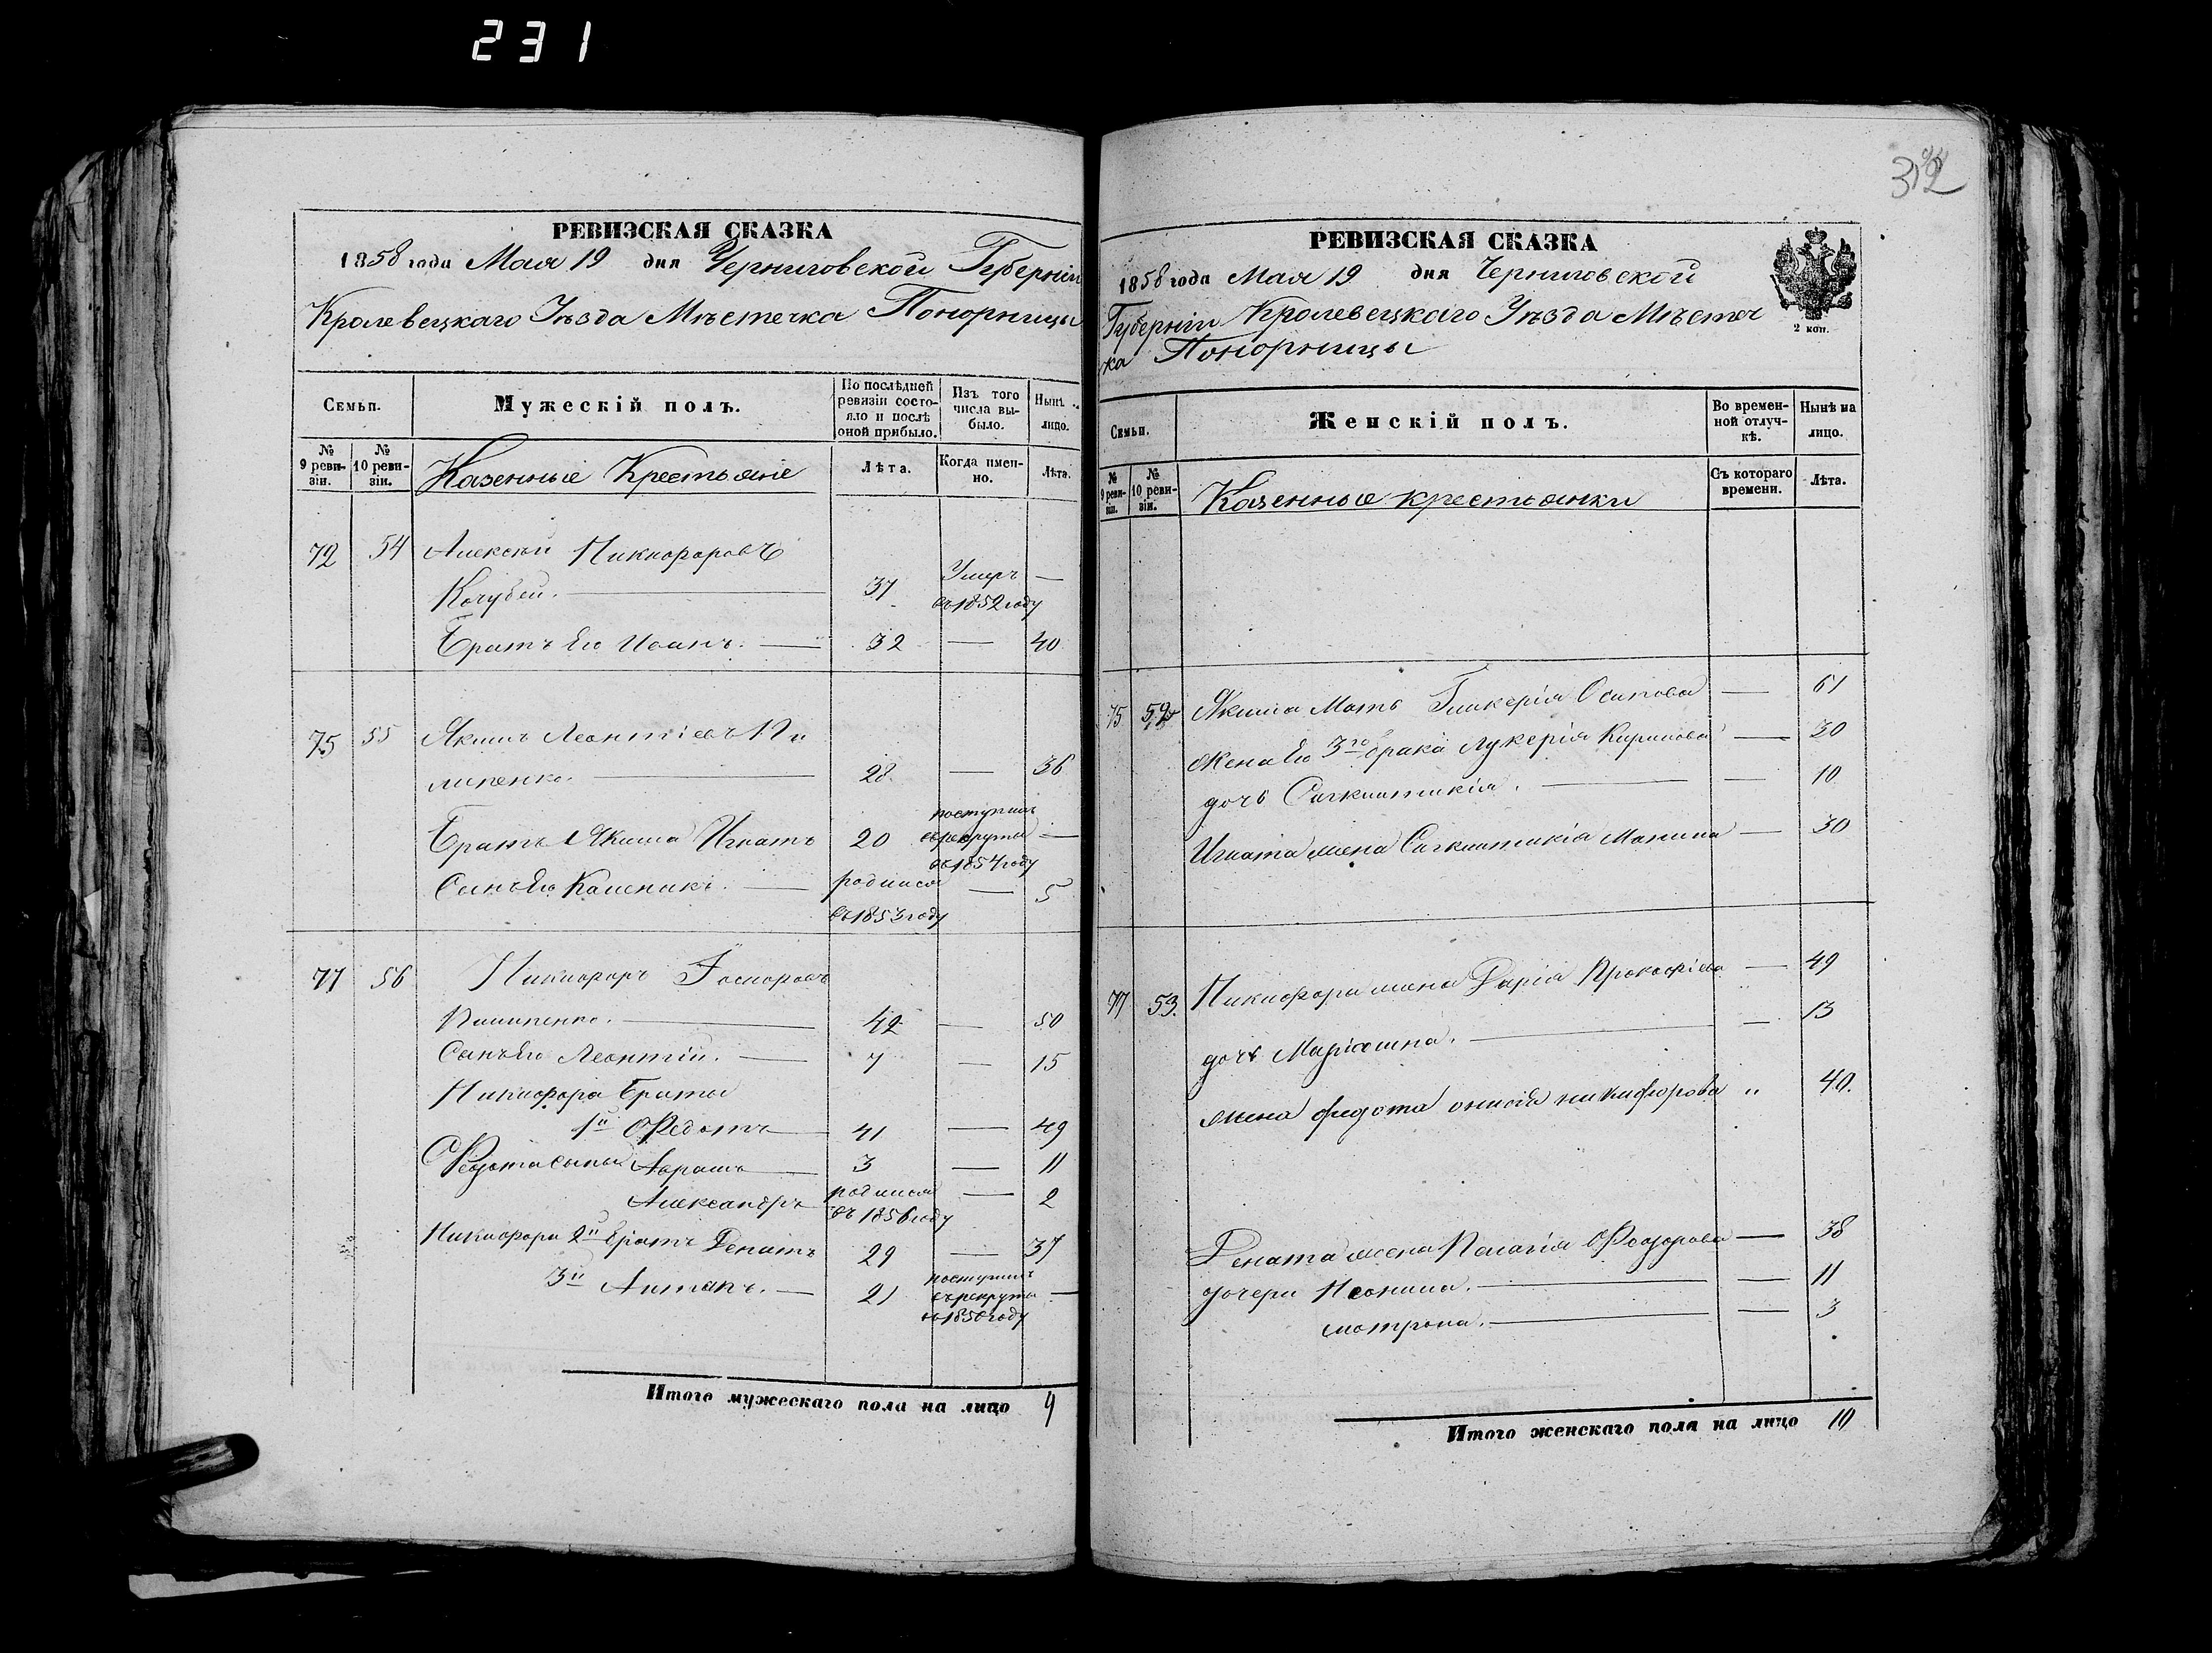 231
РЕВИЗСКАЯ СКАЗКА
1858 года Мая 19 дня Черниговской Губерніи
Кролевецкаго Уѣзда Мѣстечка Понорницы
Семьи. Мужескій полъ. По послѣдней ревизіи состояло и послѣ оной прибыло. Изъ того числа выбыло. Нынѣ лицо.
№ 9 ревизіи. № 10 ревизіи. Казенные Крестьяне Лѣта. Когда именно. Лѣта.
72 54 Алексѣй Никифоровъ
Кочубей. — 37 Умеръ въ 1852 году —
Братъ Его Иванъ. — 32 — 40
75 55 Якимъ Леонтіевъ Пи
липенко. — 28 — 36
Братъ Якима Игнатъ 20 поступилъ въ рекруты въ 1854 году —
Сынъ Его Каленикъ. — родился въ 1853 году — 5
77 56 Никифоръ
Пилипенко. — 42 — 50
Сынъ Его Леонтій. — 7 — 15
Никифора Браты
1й Федотъ — 41 — 49
Федота сыны Аврамъ — 3 — 11
Александръ родился въ 1856 году — 2
Никифора 2й братъ Игнатъ 29 — 37
3й — 21 поступилъ въ рекруты —
Итого мужескаго пола на лицо 9
РЕВИЗСКАЯ СКАЗКА
1858 года Мая 19 дня Черниговской
Губерніи Кролевецкаго Уѣзда Мѣстеч
ка Понорницы
2 коп.
Семьи. Женскій полъ. Во временной отлучкѣ. Нынѣ на лицо.
№ 9 ревизіи. № 10 ревизіи. Казенные крестьянки Съ котораго времени. Лѣта.
75 Якима Мать Гликерія Осипова — 61
Жена Его 3го брака Лукерія Кирилова — 30
дочь — 10
Игната жена — 30
77 53. Никифора жена Дарія Прокофіева — 49
дочь Маріамна. — 13
жена федота онисія никифорова " 40.
жена Пелагія Федорова — 38
дочери — 11
мотрона. — 3
Итого женскаго пола на лицо 10